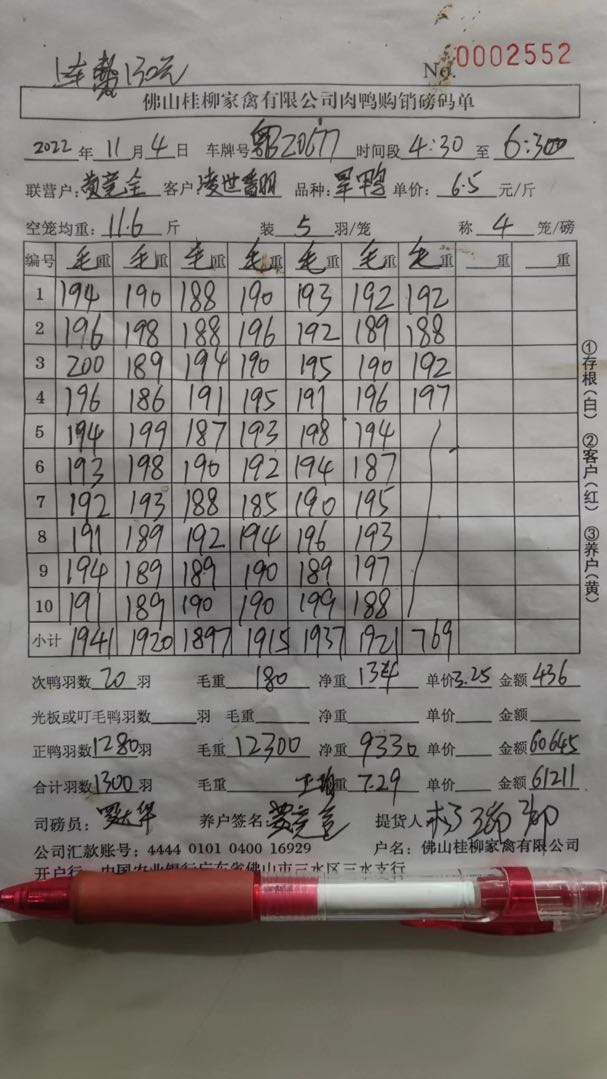 上车费130元
No. 0002552
佛山桂柳家禽有限公司肉鸭购销磅码单
2022 年 11 月 4 日 车牌号 粤Z0677 时间段 4:30 至 6:300
联营户: 客户 品种: 旱鸭 单价: 6.5 元/斤
空笼均重: 11.6 斤 装 5 羽/笼 称 4 笼/磅
编号 毛重 毛重 毛重 毛重 毛重 毛重 毛重 重 重
1 194 190 188 190 193 192 192
2 196 198 188 196 192 189 188
3 200 189 194 190 195 190 192
4 196 186 191 195 191 196 197
5 194 199 187 193 198 194
6 193 198 190 192 194 187
7 192 193 188 185 190 195
8 191 189 192 194 196 193
9 194 189 189 190 189 197
10 191 189 190 190 199 188
小计 1941 1920 1897 1915 1937 1921 769
次鸭羽数 20 羽 毛重 180 净重 134 单价 3.25 金额 436
光板或叮毛鸭羽数 羽 毛重 净重 单价 金额
正鸭羽数 1280 羽 毛重 12300 净重 9330 单价 金额 60645
合计羽数 1300 羽 毛重 重 7.29 单价 金额 61211
司磅员: 养户签名: 提货人
公司汇款账号: 4444 0101 0400 16929 户名: 佛山桂柳家禽有限公司
开户行: 中国农业银行广东省佛山市三水区三水支行
①存根(白) ②客户(红) ③养户(黄)